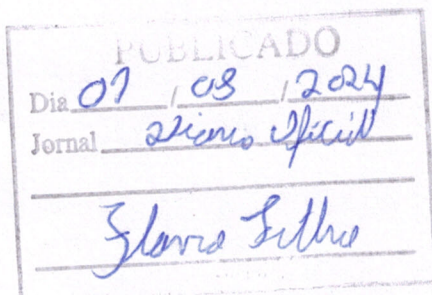 PUBLICADO
Dia 01 / 03 / 2024
Jornal Diario Oficial